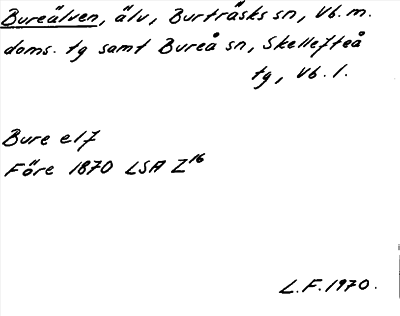 Bureälven, älv, Burträsks sn, Vb. m.
doms. tg samt Bureå sn, Skellefteå
tg, Vb. l.
Bure elf
Före 1870 LSA Z16
L.F. 1970.